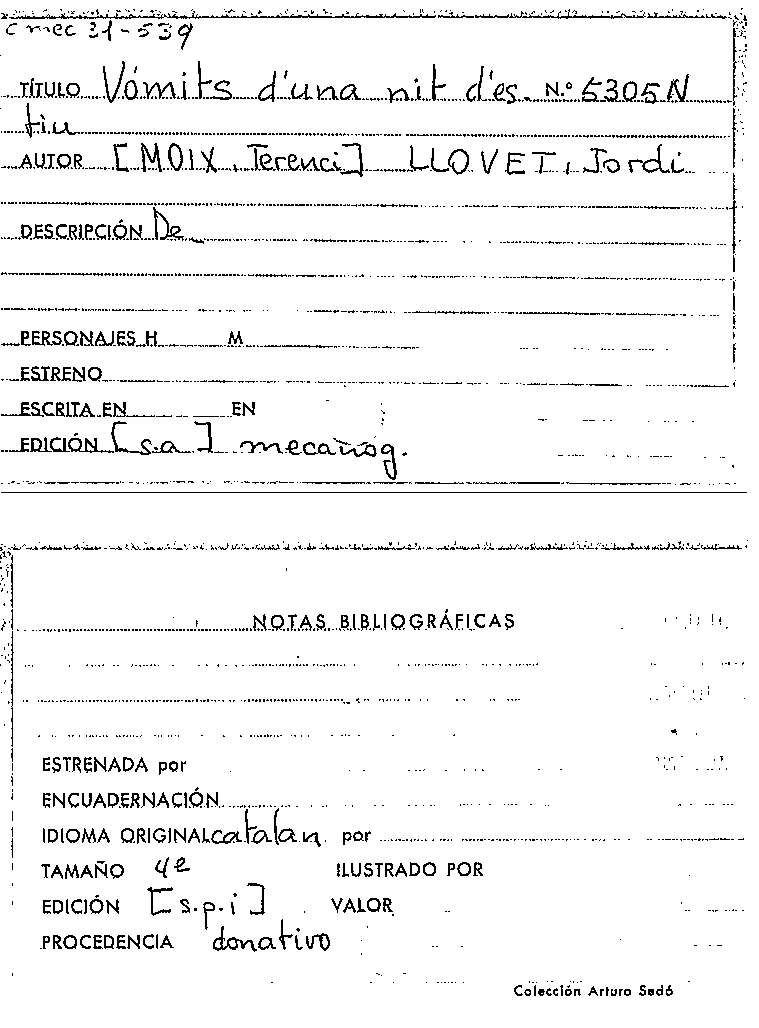 c mec 31-539
TÍTULO Vómits d'una nit d'es. N.º 5305N
tiu
AUTOR [MOIX, Terenci] LLOVET, Jordi
DESCRIPCIÓN De
PERSONAJES H M
ESTRENO
ESCRITA EN EN
EDICIÓN [s.a] mecanog.
NOTAS BIBLIOGRÁFICAS
ESTRENADA por
ENCUADERNACIÓN
IDIOMA ORIGINAL catalan por
TAMAÑO 4e ILUSTRADO POR
EDICIÓN [s.p.i] VALOR
PROCEDENCIA donativo
Colección Arturo Sedó